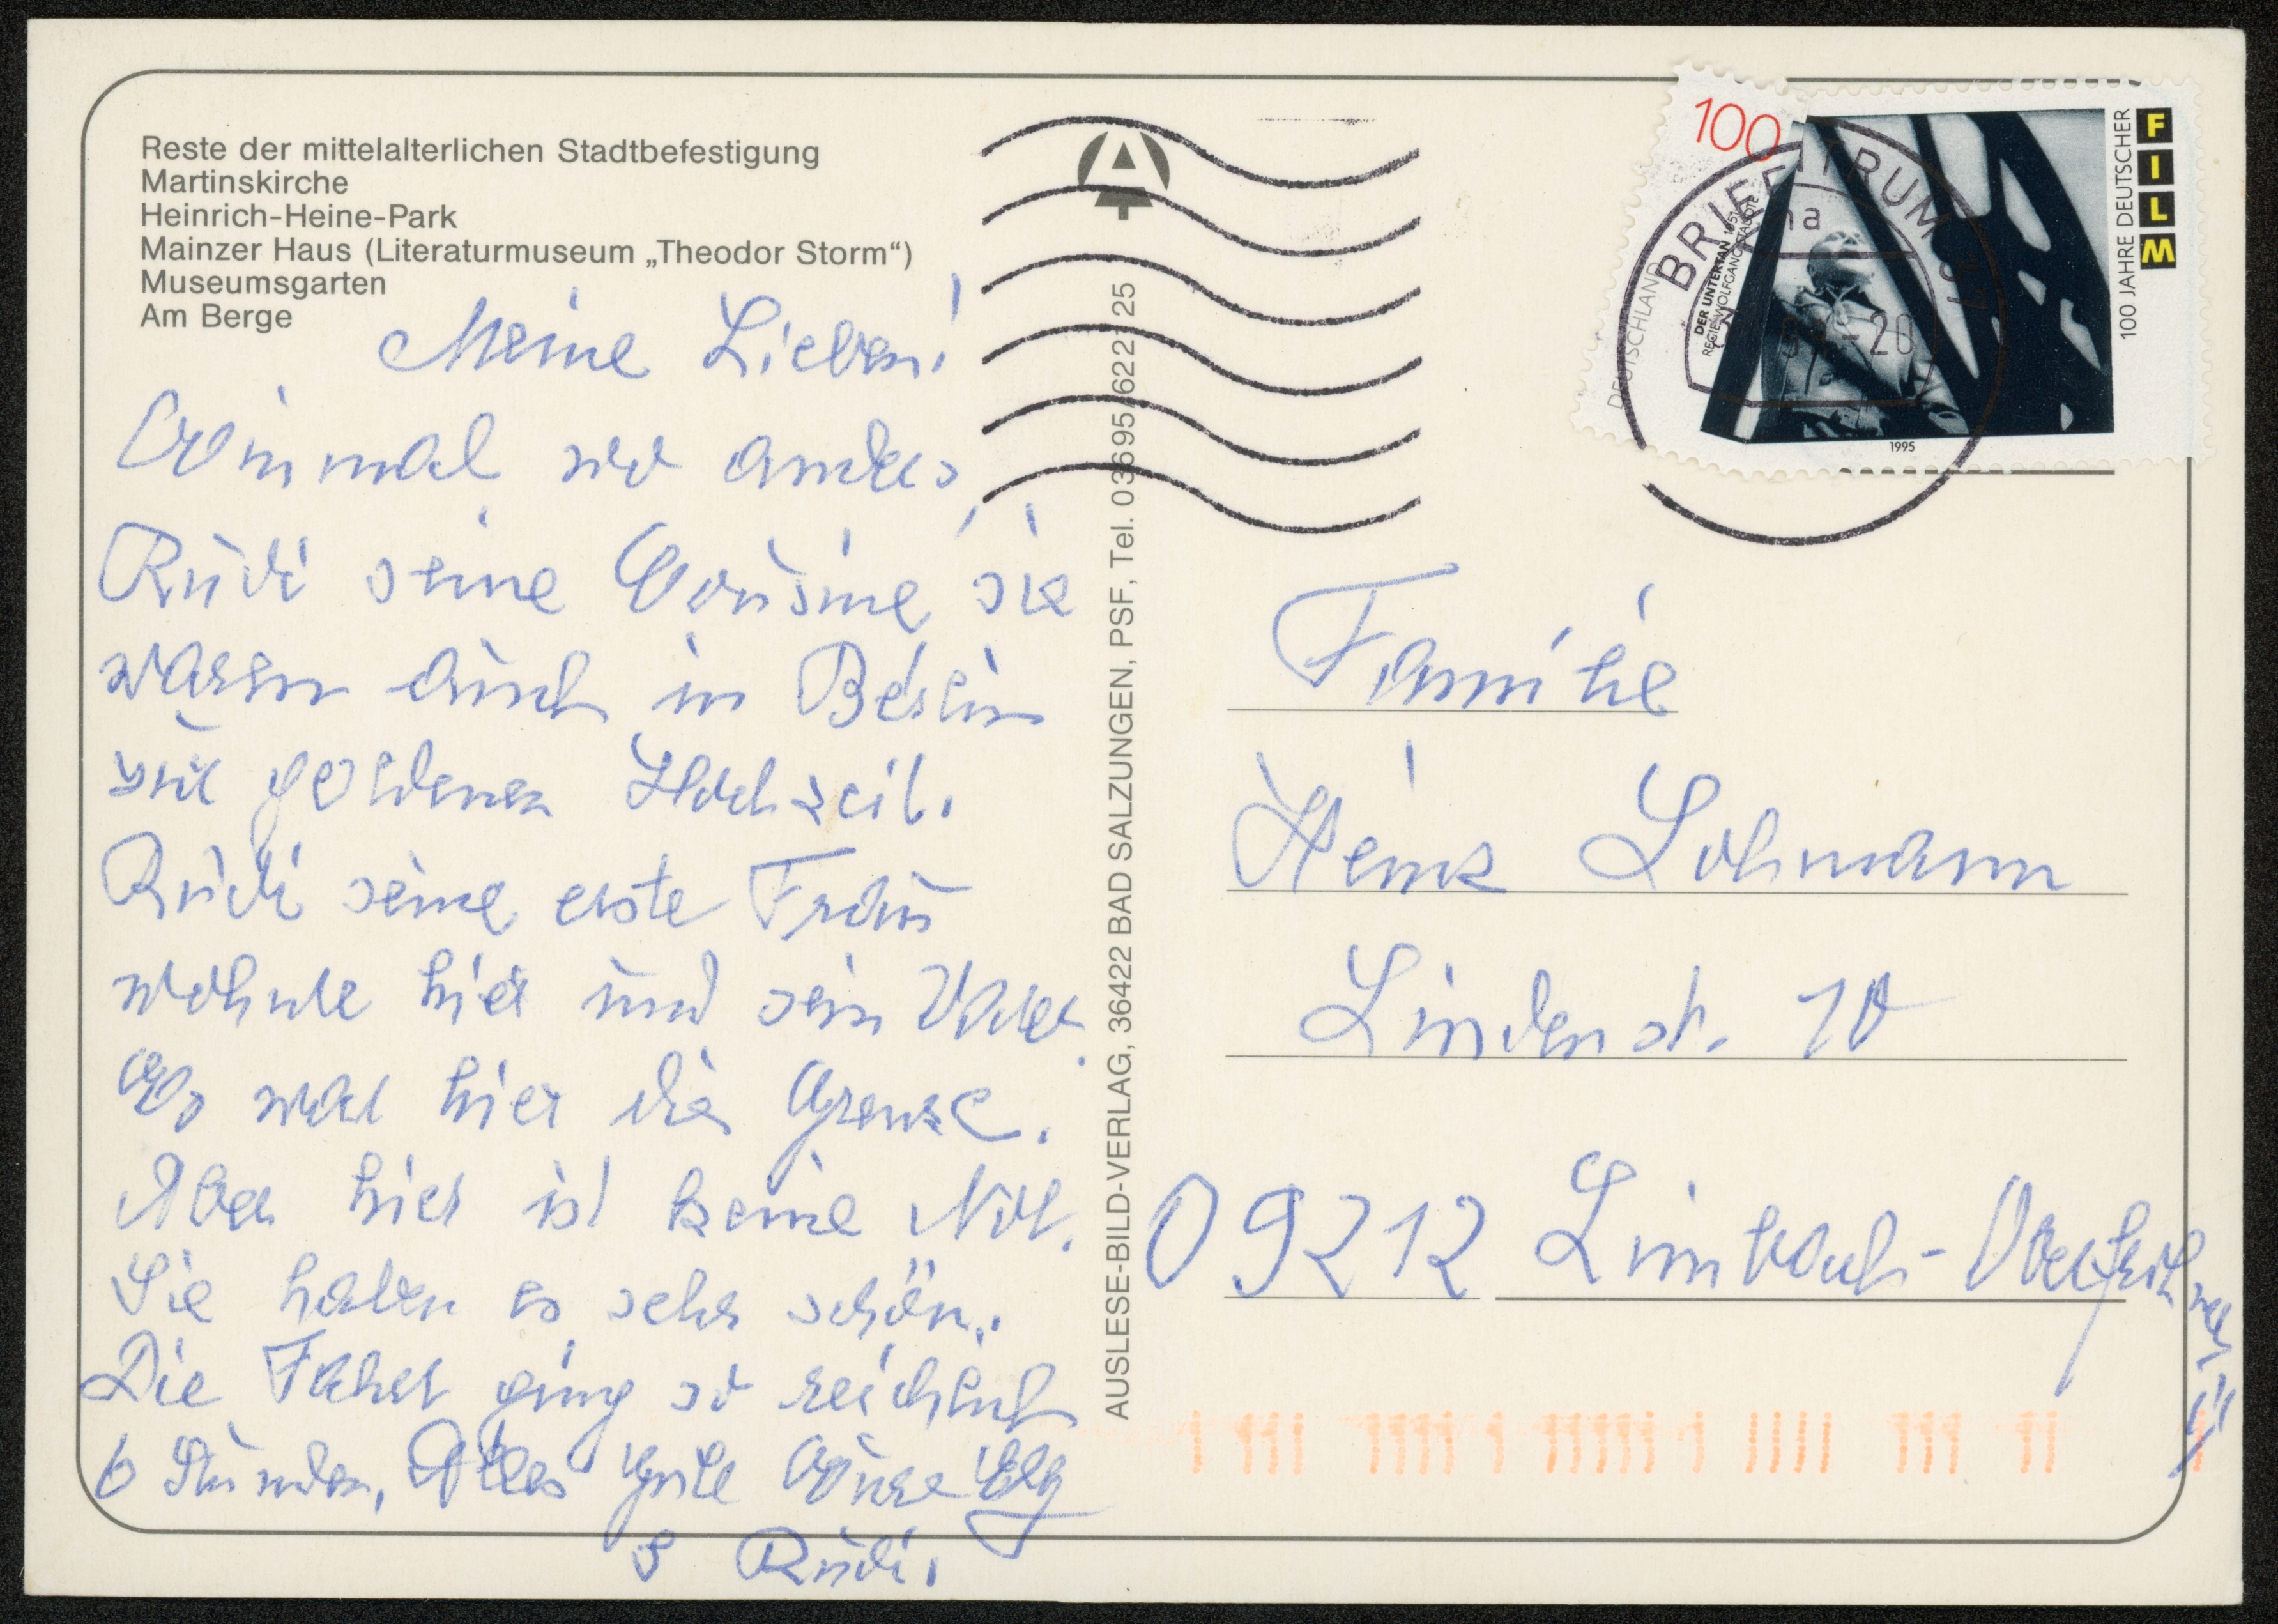 Reste der mittelalterlichen Stadtbefestigung
Martinskirche
Heinrich-Heine-Park
Mainzer Haus (Literaturmuseum „Theodor Storm“)
Museumsgarten
Am Berge
Meine Lieben!
Einmal wo anders,
Rudi seine Cousine, sie
waren auch in Berlin
zur goldenen Hochzeit.
Rudi seine erste Frau
wohnte hier und sein Vater.
Es war hier die Grenze.
Aber hier ist keine Not.
Sie haben es sehr schön.
Die Fahrt ging so reichlich
6 Stunden, Alles Gute Grüße
& Rudi.
AUSLESE-BILD-VERLAG, 36422 BAD SALZUNGEN, PSF, Tel. 03695/622125
100
DEUTSCHLAND
DER UNTERTAN 1951
REGIE: WOLFGANG STAUDTE
100 JAHRE DEUTSCHER
FILM
1995
BRIEFZENTRUM
-20
Familie
Heinz Lohmann
Lindenstr. 10
09212 Limbach-Oberfrohna